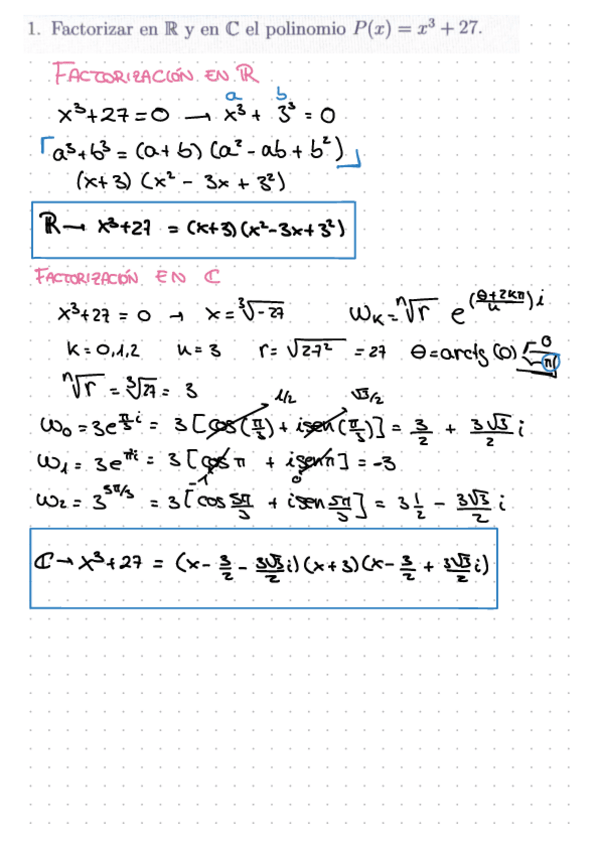 1. Factorizar en ℝ y en ℂ el polinomio P(x) = x³ + 27.
FACTORIZACIÓN EN ℝ
a b
x³+27=0 → x³ + 3³ = 0
⌈a³+b³ = (a+b) (a² - ab + b²)⌋
(x+3) (x² - 3x + 3²)
ℝ → x³+27 = (x+3)(x²-3x+3²)
FACTORIZACIÓN EN ℂ
x³+27 = 0 → x = ³√-27 Wₖ = ⁿ√r e^((θ+2kπ)/n)i
k = 0,1,2 n = 3 r = √27² = 27 θ = arctg (0) 0 π
ⁿ√r = ³√27 = 3 1/2 √3/2
W₀ = 3e^(π/3 i) = 3 [cos(π/3) + isen(π/3)] = 3/2 + 3√3/2 i
W₁ = 3e^(πi) = 3 [cos π + isenπ] = -3
-1 0
W₂ = 3^(5π/3) = 3[cos 5π/3 + isen 5π/3] = 3 1/2 - 3√3/2 i
ℂ → x³+27 = (x - 3/2 - 3√3/2 i) (x+3) (x - 3/2 + 3√3/2 i)